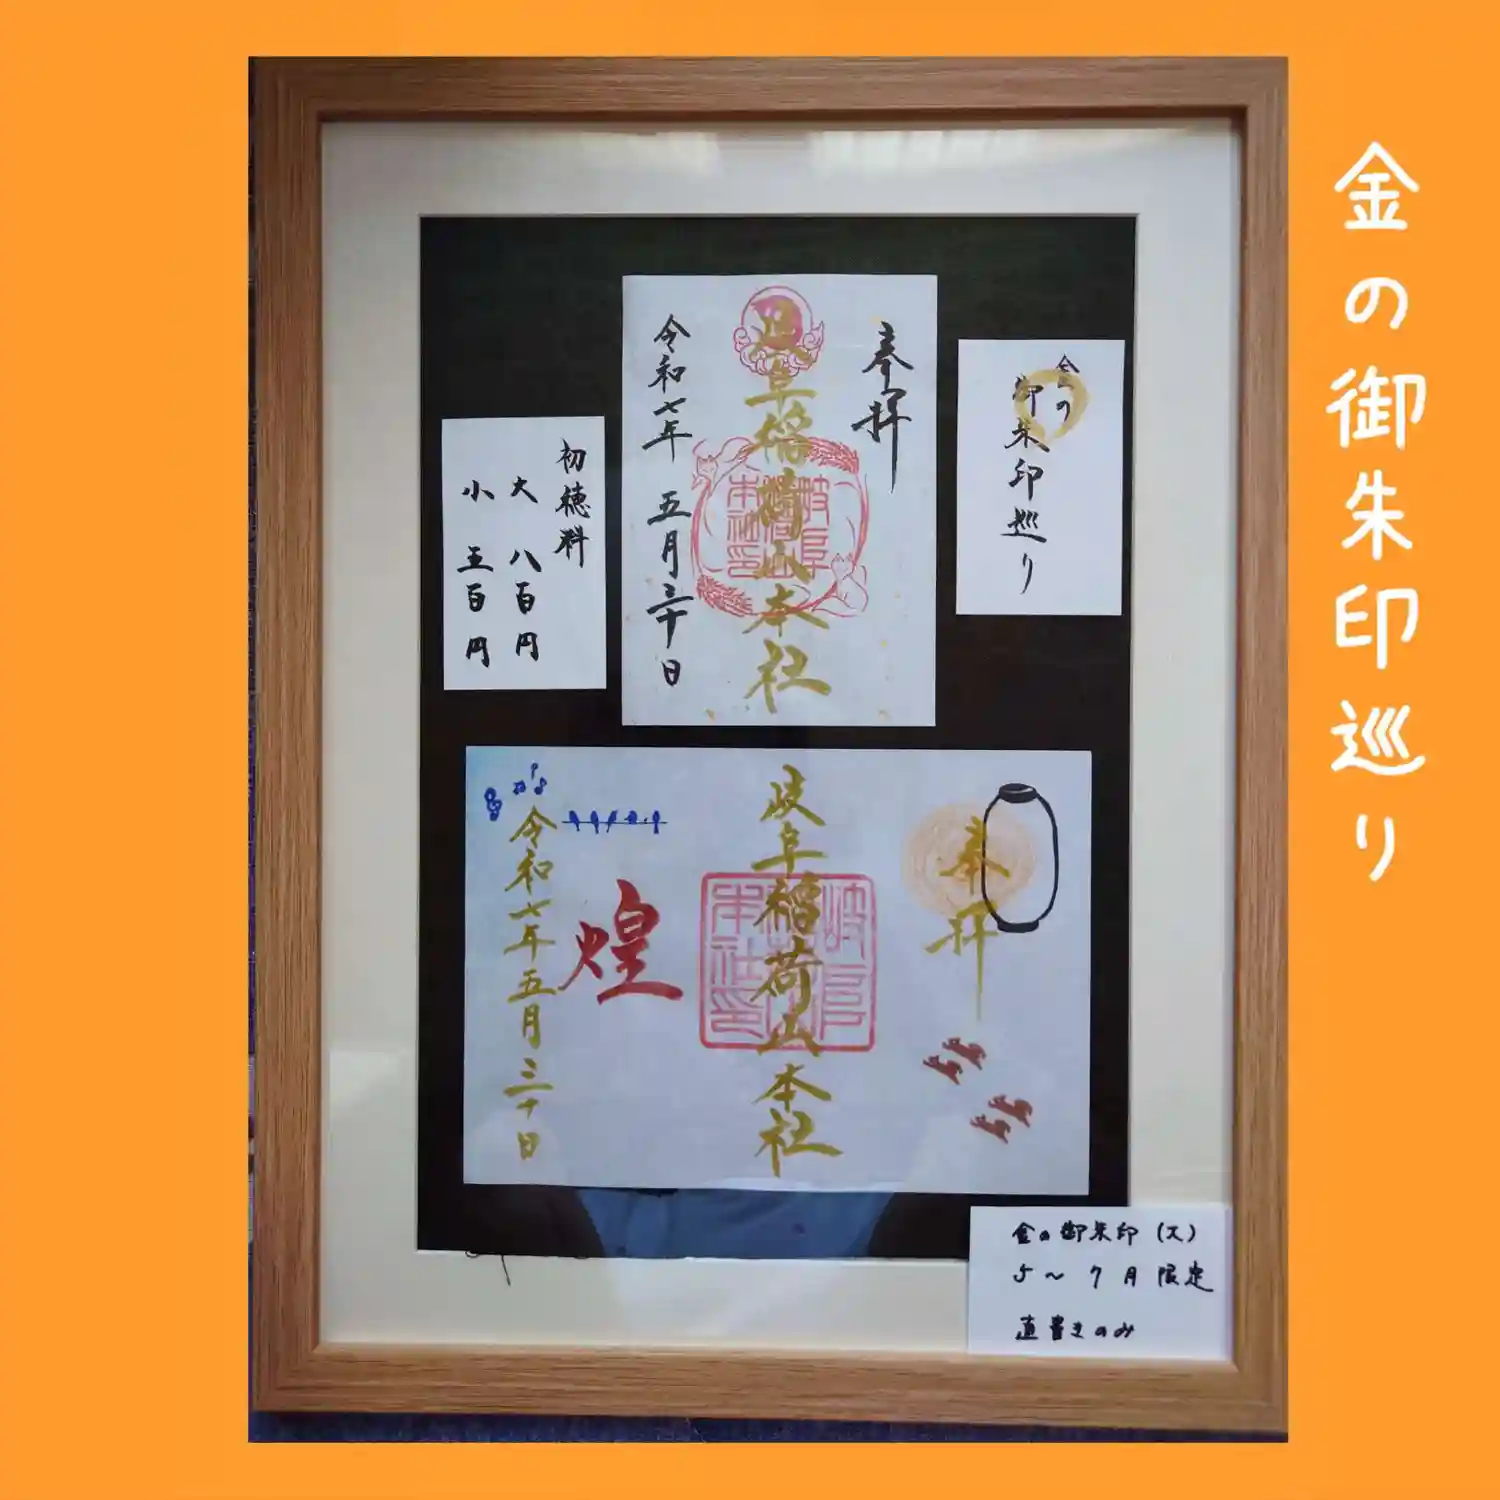 金の御朱印巡り
金の
御朱印巡り
奉拝
岐阜稲荷山本社
岐阜
稲荷山
本社印
令和七年 五月三十日
初穂料
大 八百円
小 五百円
奉拝
岐阜稲荷山本社
岐阜
稲荷山
本社印
煌
令和七年五月三十日
金の御朱印(大)
5〜7月限定
直書きのみ